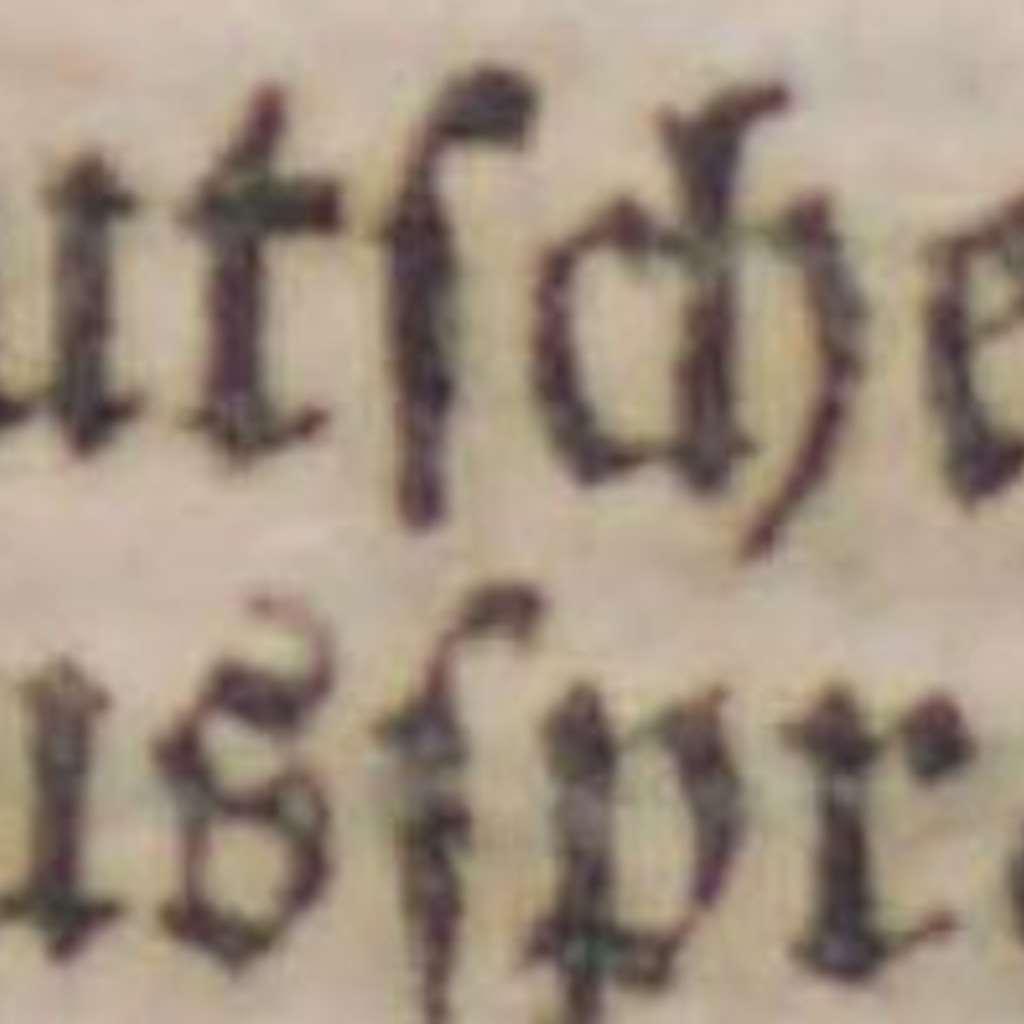 utſche
usſpr